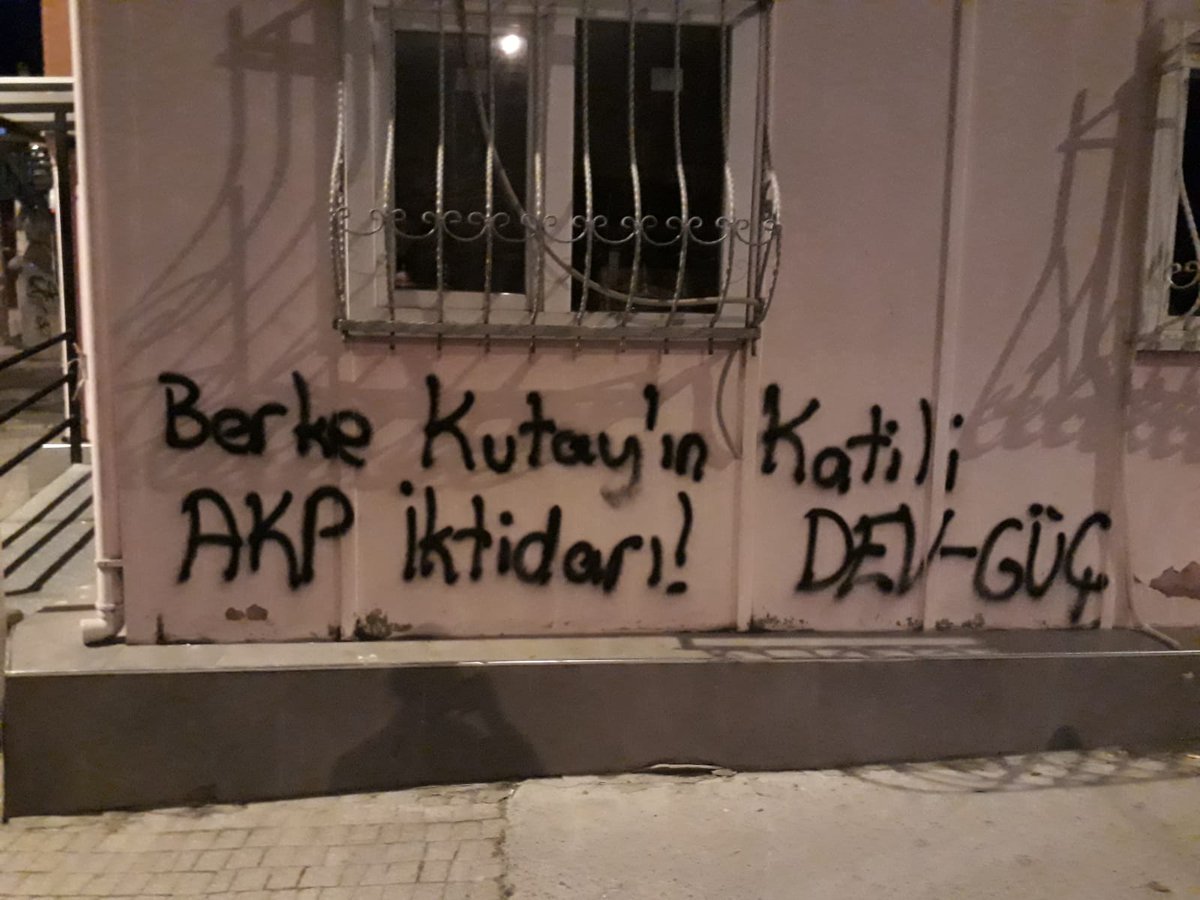 Berke Kutay'ın Katili
AKP İktidarı! DEV-GÜÇ